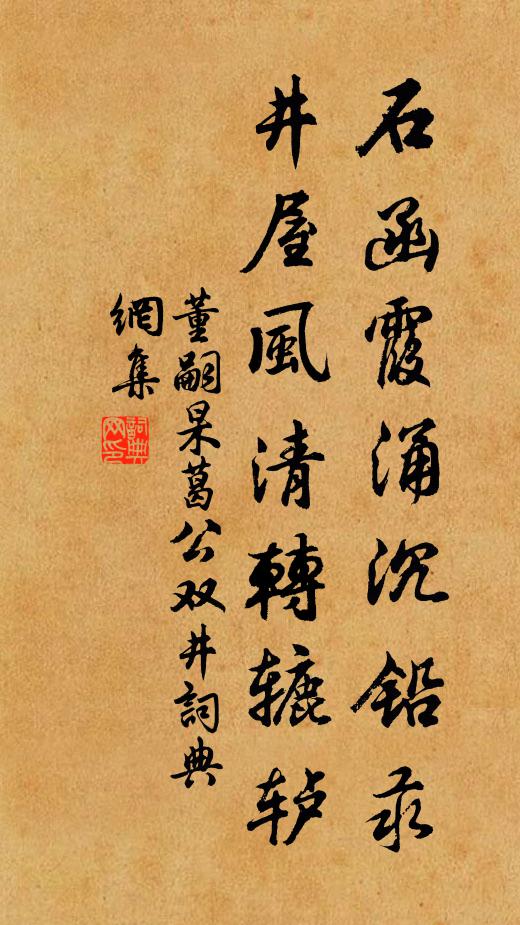 石函霞涌沉铅汞
井屋風清轉辘轳
董嗣杲葛公双井詞典
網集
詞典
网印